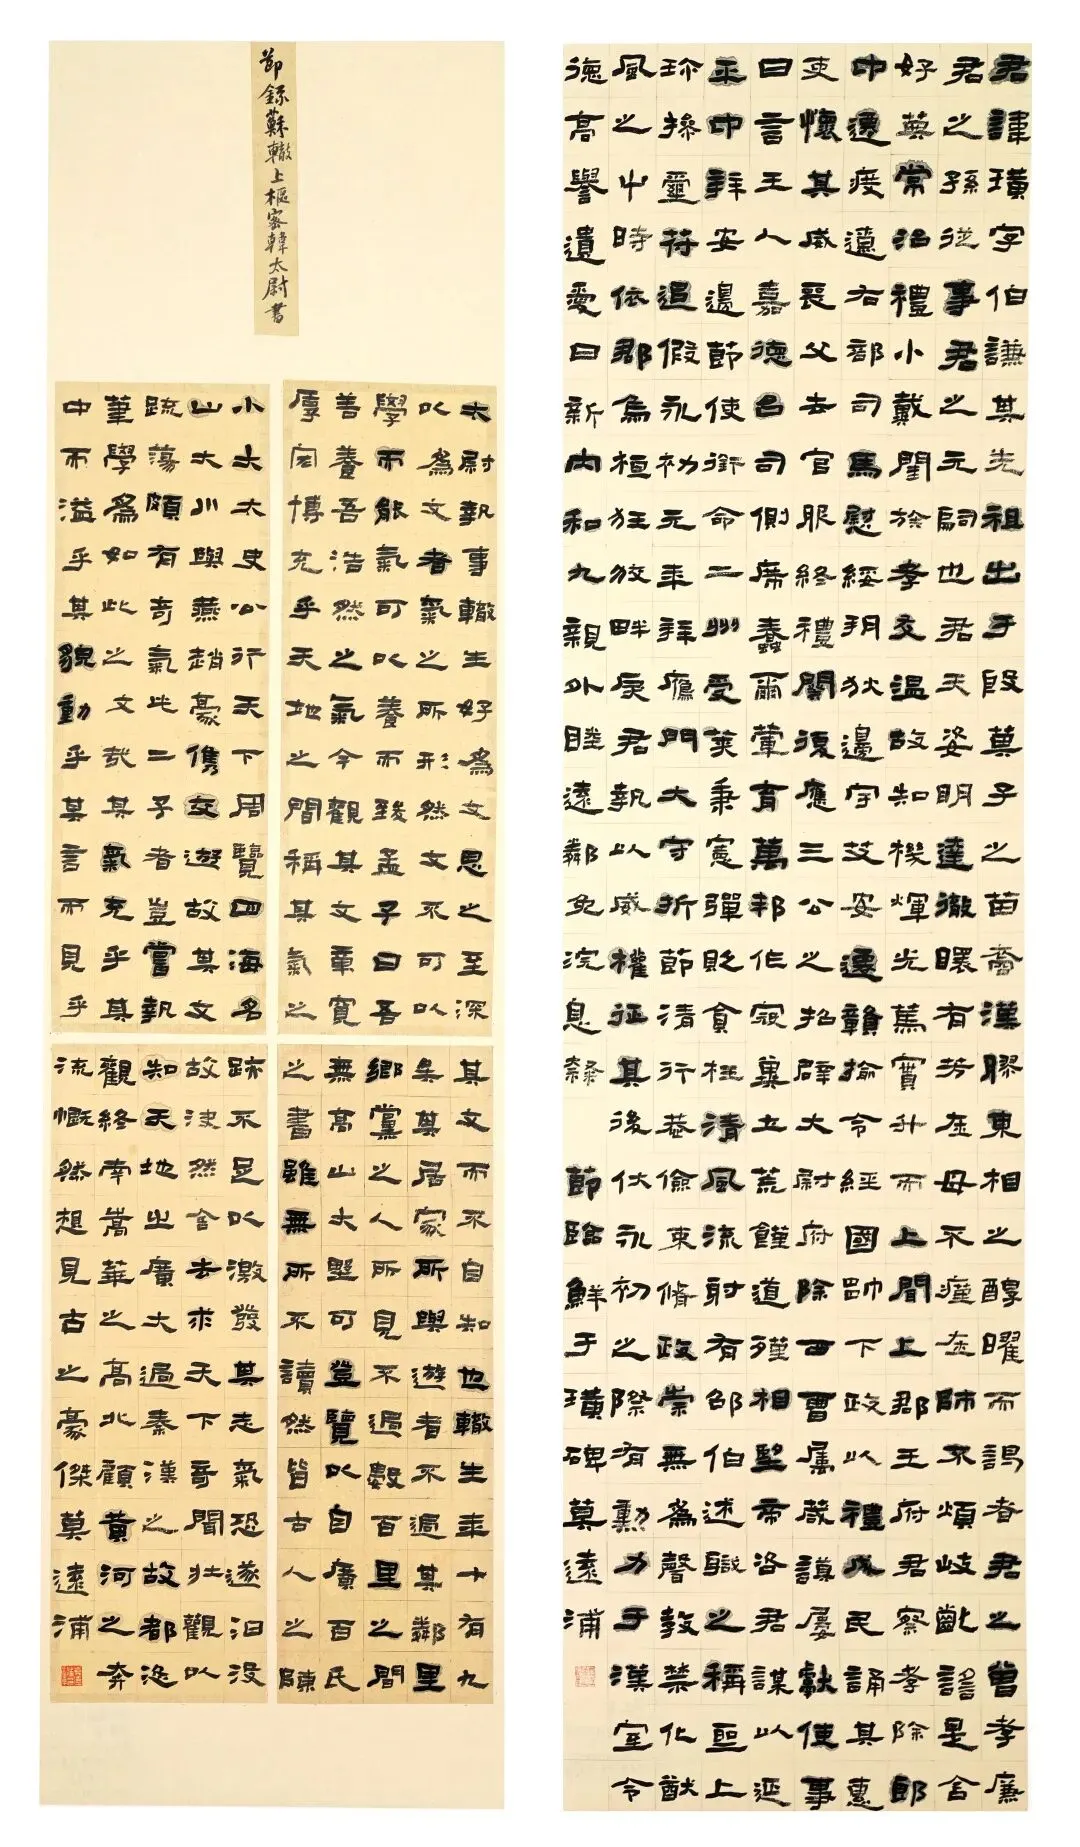 君諱璜字伯謙其先祖出于殷箕子之苗裔漢膠東相之醇曜而謁者君之曾孝廉
君之孫從事君之元嗣也君天姿明達徹曠有芳在母不瘇在師不煩岐齔謠是含
好英常治禮小戴閨族孝友溫故知機煇光篤實升而上聞上郡王府君察孝除郎
中遷度遼右部司馬慰綏朔狄邊宇艾安遷贛揄令經國帥下政以禮成民誦其惠
吏懷其威喪父去官服終禮闋復應三公之招辟大尉府除西曹屬蕆謨屢獻使事
曰言王人嘉德名司側席蠢爾葷育萬邦作寇冀土荒饉道殣相望帝咨君謀以延
平中拜安邊節使銜命二州受莢秉憲彈貶貪枉清風流射有邵伯述職之稱亟上
珎操璽符追假永初元年拜鴈門大守折節清行恭儉束脩政崇無為聲教禁化猷
風之中時依郡烏桓狂狡畔戾君執以威權征其後伏永初之際有勳力于漢室令
德高譽遺愛日新內和九親外睦遠鄰免浣息隸
節臨鮮于璜碑莫遠浦
節錄蘇轍上樞密韓太尉書
太尉執事轍生好為文思之至深
以為文者氣之所形然文不可以
學而能氣可以養而致孟子曰吾
善養吾浩然之氣今觀其文章寬
厚宏博充乎天地之間稱其氣之
小大太史公行天下周覽四海名
山大川與燕趙豪儁交遊故其文
疏蕩頗有奇氣此二子者豈嘗執
筆學為如此之文哉其氣充乎其
中而溢乎其貌動乎其言而見乎
其文而不自知也轍生年十有九
矣其居家所與遊者不過其鄰里
鄉黨之人所見不過數百里之間
無高山大野可登覽以自廣百氏
之書雖無所不讀然皆古人之陳
跡不足以激發其志氣恐遂汩沒
故決然舍去求天下奇聞壯觀以
知天地之廣大過秦漢之故都恣
觀終南嵩華之高北顧黃河之奔
流慨然想見古之豪傑莫遠浦